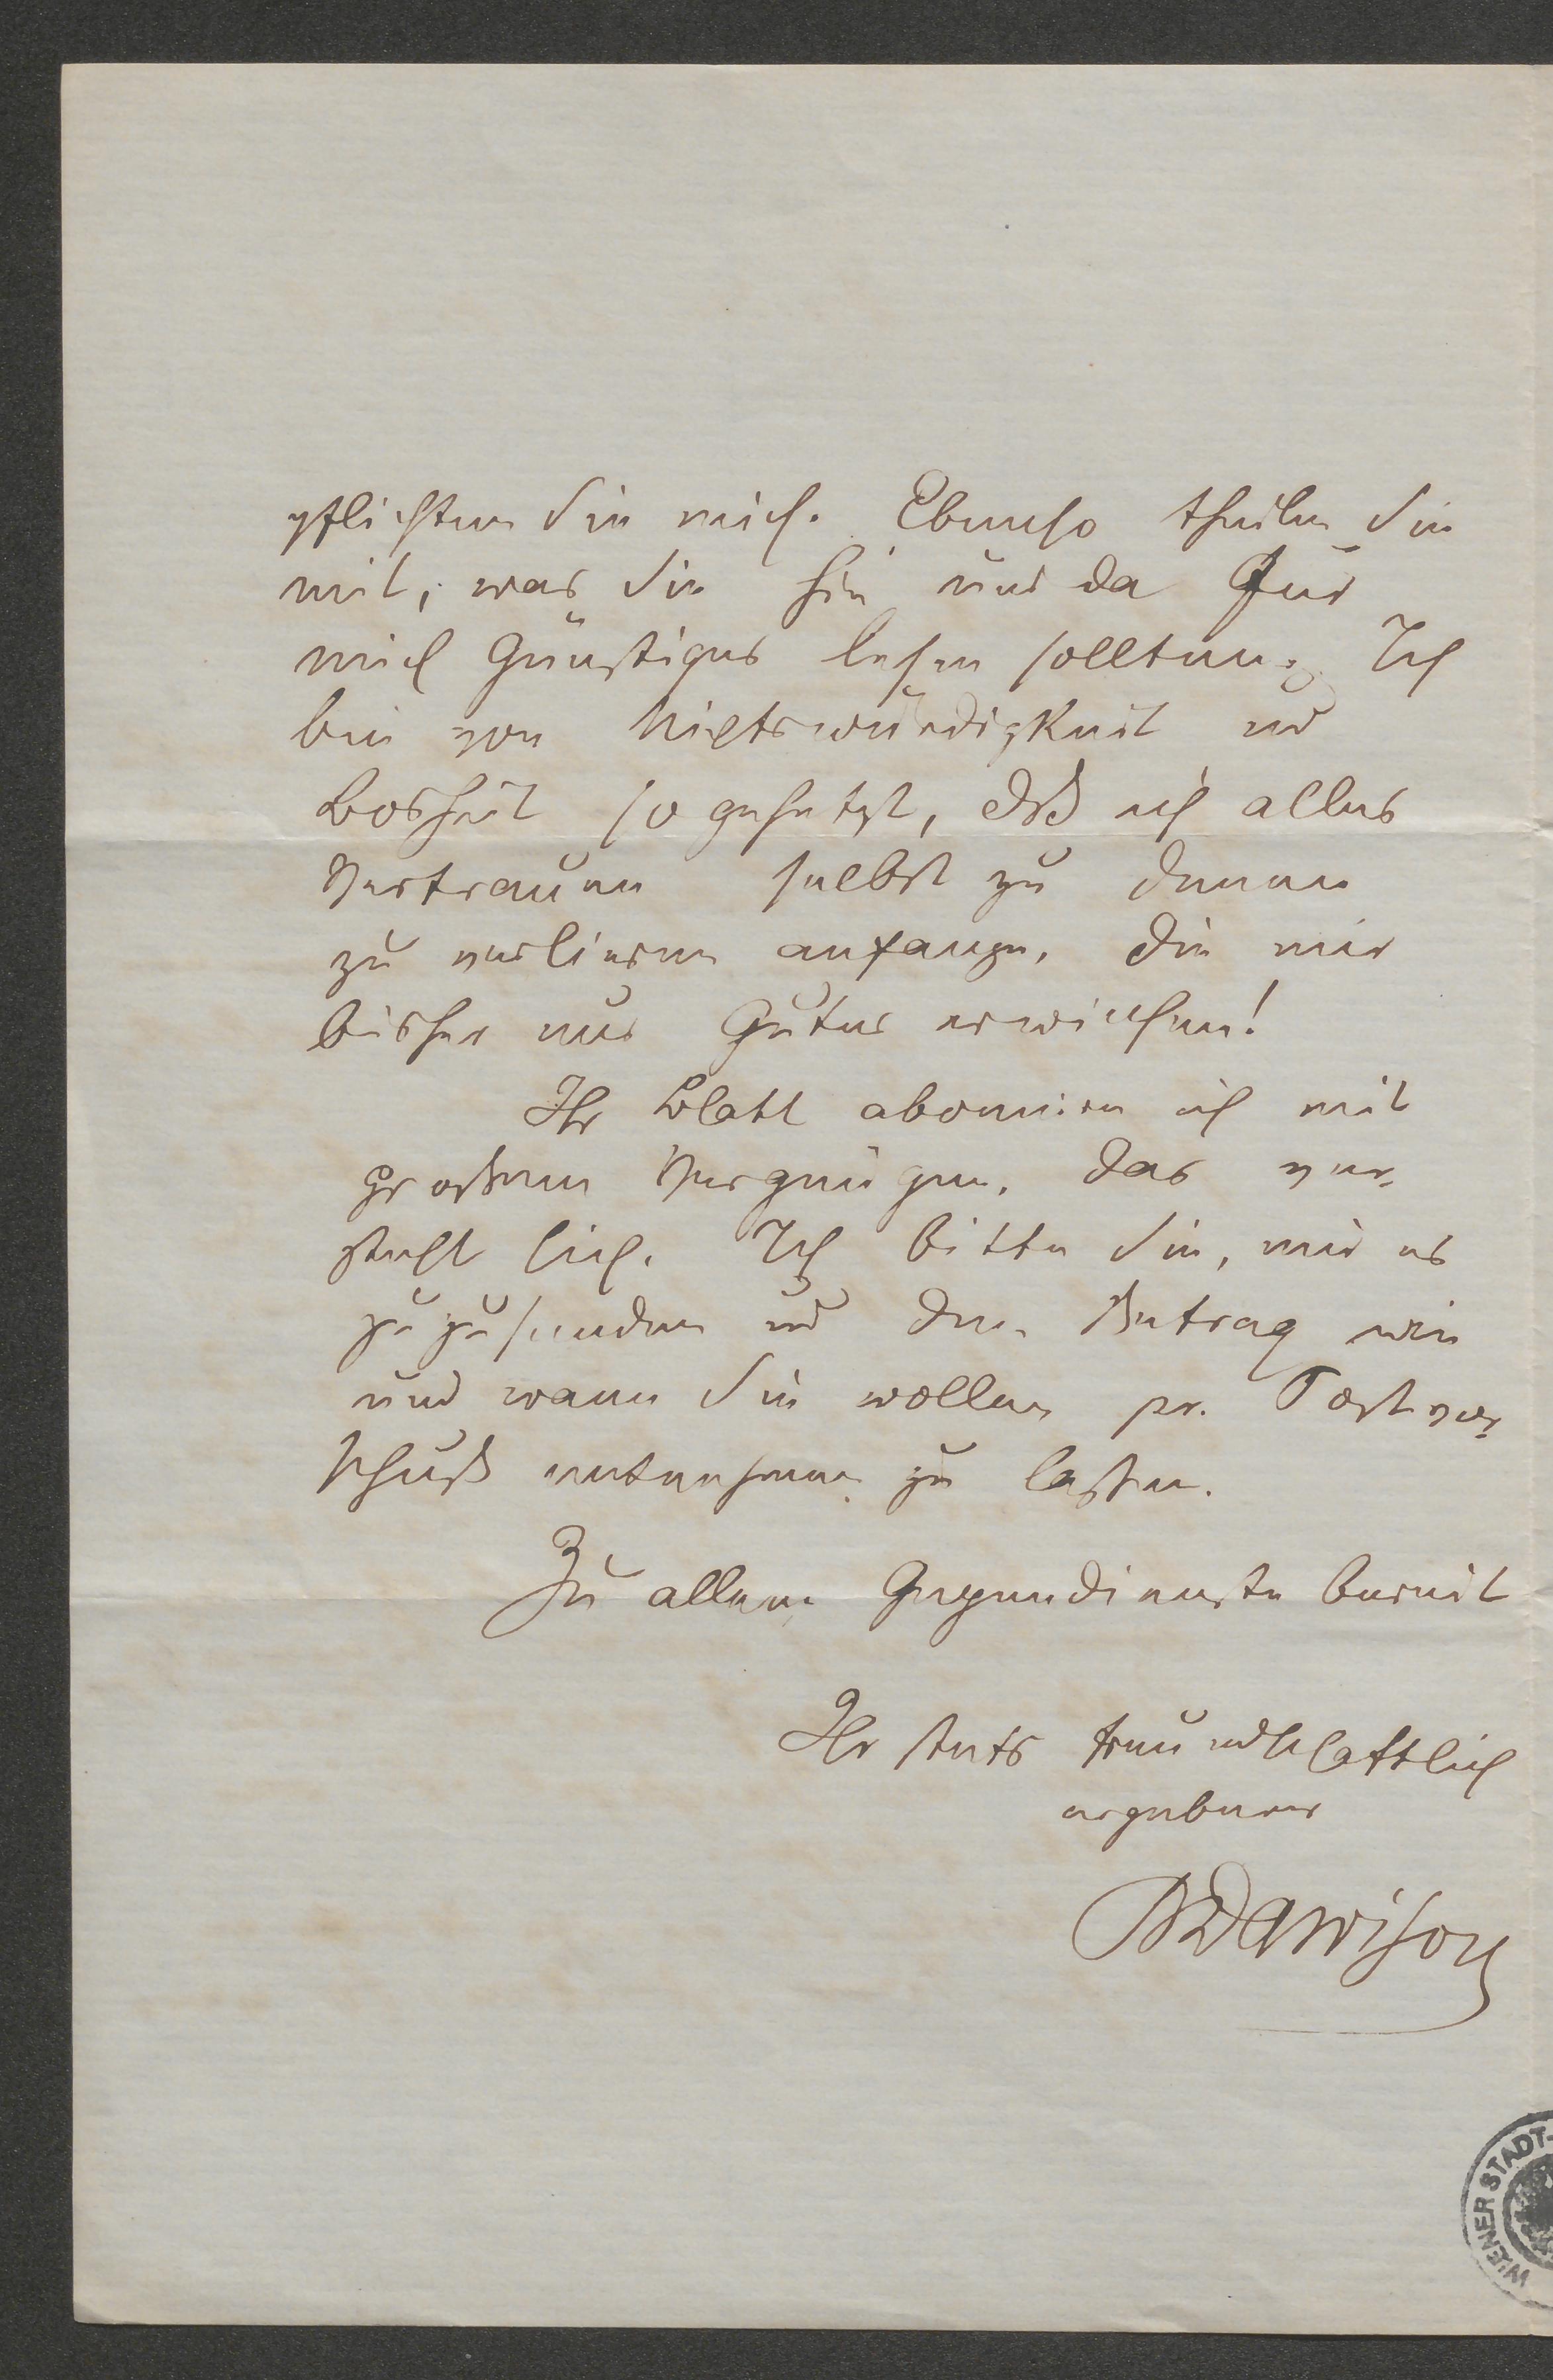 pflichten Sie mich. Ebenso theilen Sie
mit, was Sie hie und da für
mich Günstiges lesen sollten. Ich
bin von Nichtswürdigkeit und
Bosheit so gehetzt, daß ich alles
Vertrauen selbst zu denen
zu verlieren anfange, die mir
bisher nur Gutes erwiesen!
Ihr Blatt abonnire ich mit
großem Vergnügen, das ver-
steht sich. Ich bitte Sie, mir es
zuzusenden und den Betrag wie
und wann Sie wollen pr. Postvor-
schuß entnehmen zu lassen.
Zu allem Gegendienste bereit
Ihr stets freundschaftlich
ergebener
BDawison
WIENER STADT-